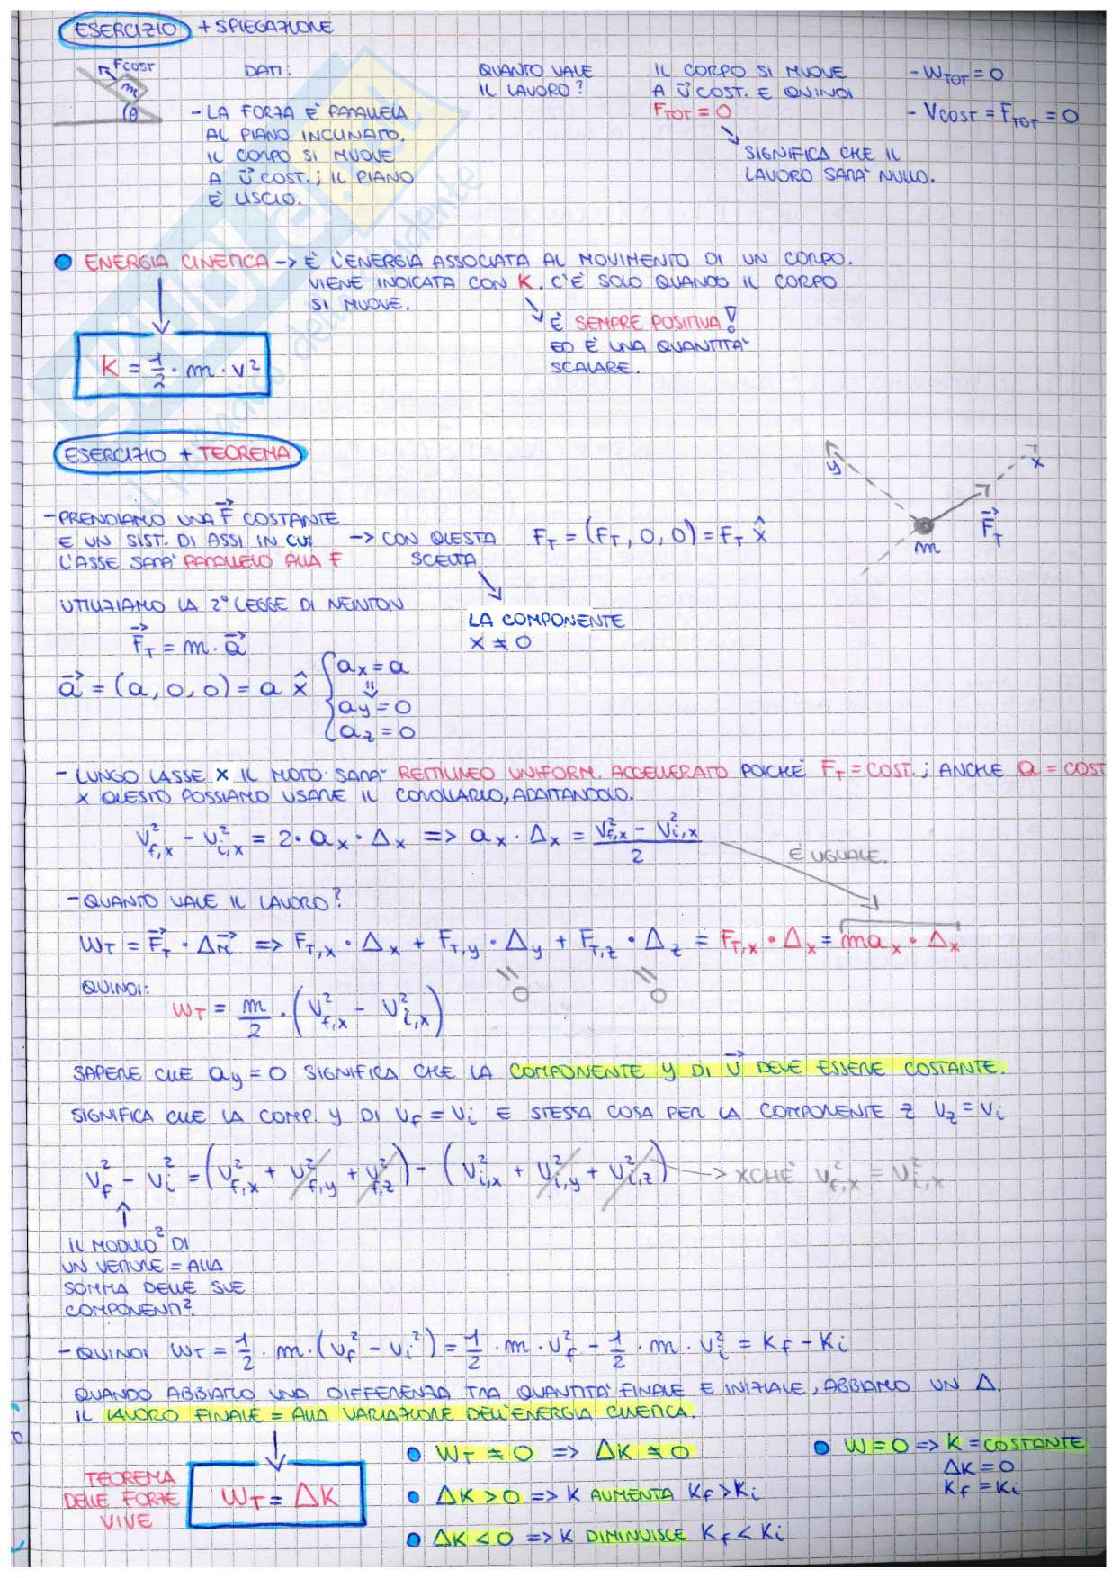 ESERCIZIO + SPIEGAZIONE
FCOST
m
θ
DATI:
- LA FORZA E' PARALLELA
AL PIANO INCLINATO.
IL CORPO SI MUOVE
A v⃗ COST.; IL PIANO
E' LISCIO.
QUANTO VALE
IL LAVORO?
IL CORPO SI MUOVE
A v⃗ COST. E QUINDI
FTOT = 0
SIGNIFICA CHE IL
LAVORO SARA' NULLO.
- WTOT = 0
- VCOST = FTOT = 0
ENERGIA CINETICA -> E' L'ENERGIA ASSOCIATA AL MOVIMENTO DI UN CORPO.
VIENE INDICATA CON K. C'E' SOLO QUANDO IL CORPO
SI MUOVE.
E' SEMPRE POSITIVA!
ED E' UNA QUANTITA'
SCALARE.
K = 1/2 · m · v²
ESERCIZIO + TEOREMA
y
x
F⃗T
m
- PRENDIAMO UNA F⃗ COSTANTE
E UN SIST. DI ASSI IN CUI
L'ASSE SARA' PARALLELO ALLA F
-> CON QUESTA
SCELTA
FT = (FT, 0, 0) = FT x̂
LA COMPONENTE
x ≠ 0
UTILIZIAMO LA 2ª LEGGE DI NEWTON
F⃗T = m · a⃗
a⃗ = (a, 0, 0) = a x̂
ax = a
⇓
ay = 0
az = 0
- LUNGO L'ASSE X IL MOTO SARA' RETTILINEO UNIFORM. ACCELLERATO POICHE' FT = COST.; ANCHE a = COST
X QUESTO POSSIAMO USARE IL COROLLARIO, ADATTANDOLO.
v²f,x - v²i,x = 2 · ax · Δx => ax · Δx = (v²f,x - v²i,x)/2
E' UGUALE.
- QUANTO VALE IL LAVORO?
WT = F⃗T · Δr⃗ => FT,x · Δx + FT,y · Δy + FT,z · Δz = FT,x · Δx = max · Δx
= 0
= 0
QUINDI:
WT = m/2 · (v²f,x - v²i,x)
SAPERE CHE ay = 0 SIGNIFICA CHE LA COMPONENTE y DI v⃗ DEVE ESSERE COSTANTE.
SIGNIFICA CHE LA COMP. y DI vf = vi E STESSA COSA PER LA COMPONENTE z vz = vi
v²f - v²i = (v²f,x + v²f,y + v²f,z) - (v²i,x + v²i,y + v²i,z) -> XCHE' v²f,x = v²i,x
IL MODULO² DI
UN VETTORE = ALLA
SOMMA DELLE SUE
COMPONENTI²
- QUINDI WT = 1/2 · m · (v²f - vi²) = 1/2 · m · v²f - 1/2 · m · v²i = Kf - Ki
QUANDO ABBIAMO UNA DIFFERENZA TRA QUANTITA' FINALE E INIZIALE, ABBIAMO UN Δ.
IL LAVORO FINALE = ALLA VARIAZIONE DELL'ENERGIA CINETICA.
TEOREMA
DELLE FORZE
VIVE
WT = ΔK
WT ≠ 0 => ΔK ≠ 0
ΔK > 0 => K AUMENTA Kf > Ki
ΔK < 0 => K DIMINUISCE Kf < Ki
W = 0 => K = COSTANTE
ΔK = 0
Kf = Ki